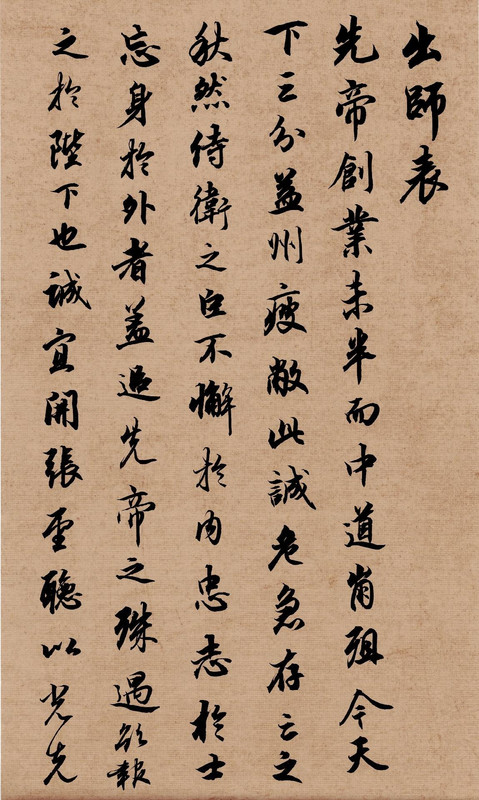 出師表
先帝創業未半而中道崩殂今天
下三分益州疲敝此誠危急存亡之
秋然侍衛之臣不懈於内忠志於士
忘身於外者蓋追先帝之殊遇欲報
之於陛下也誠宜開張聖聽以光先